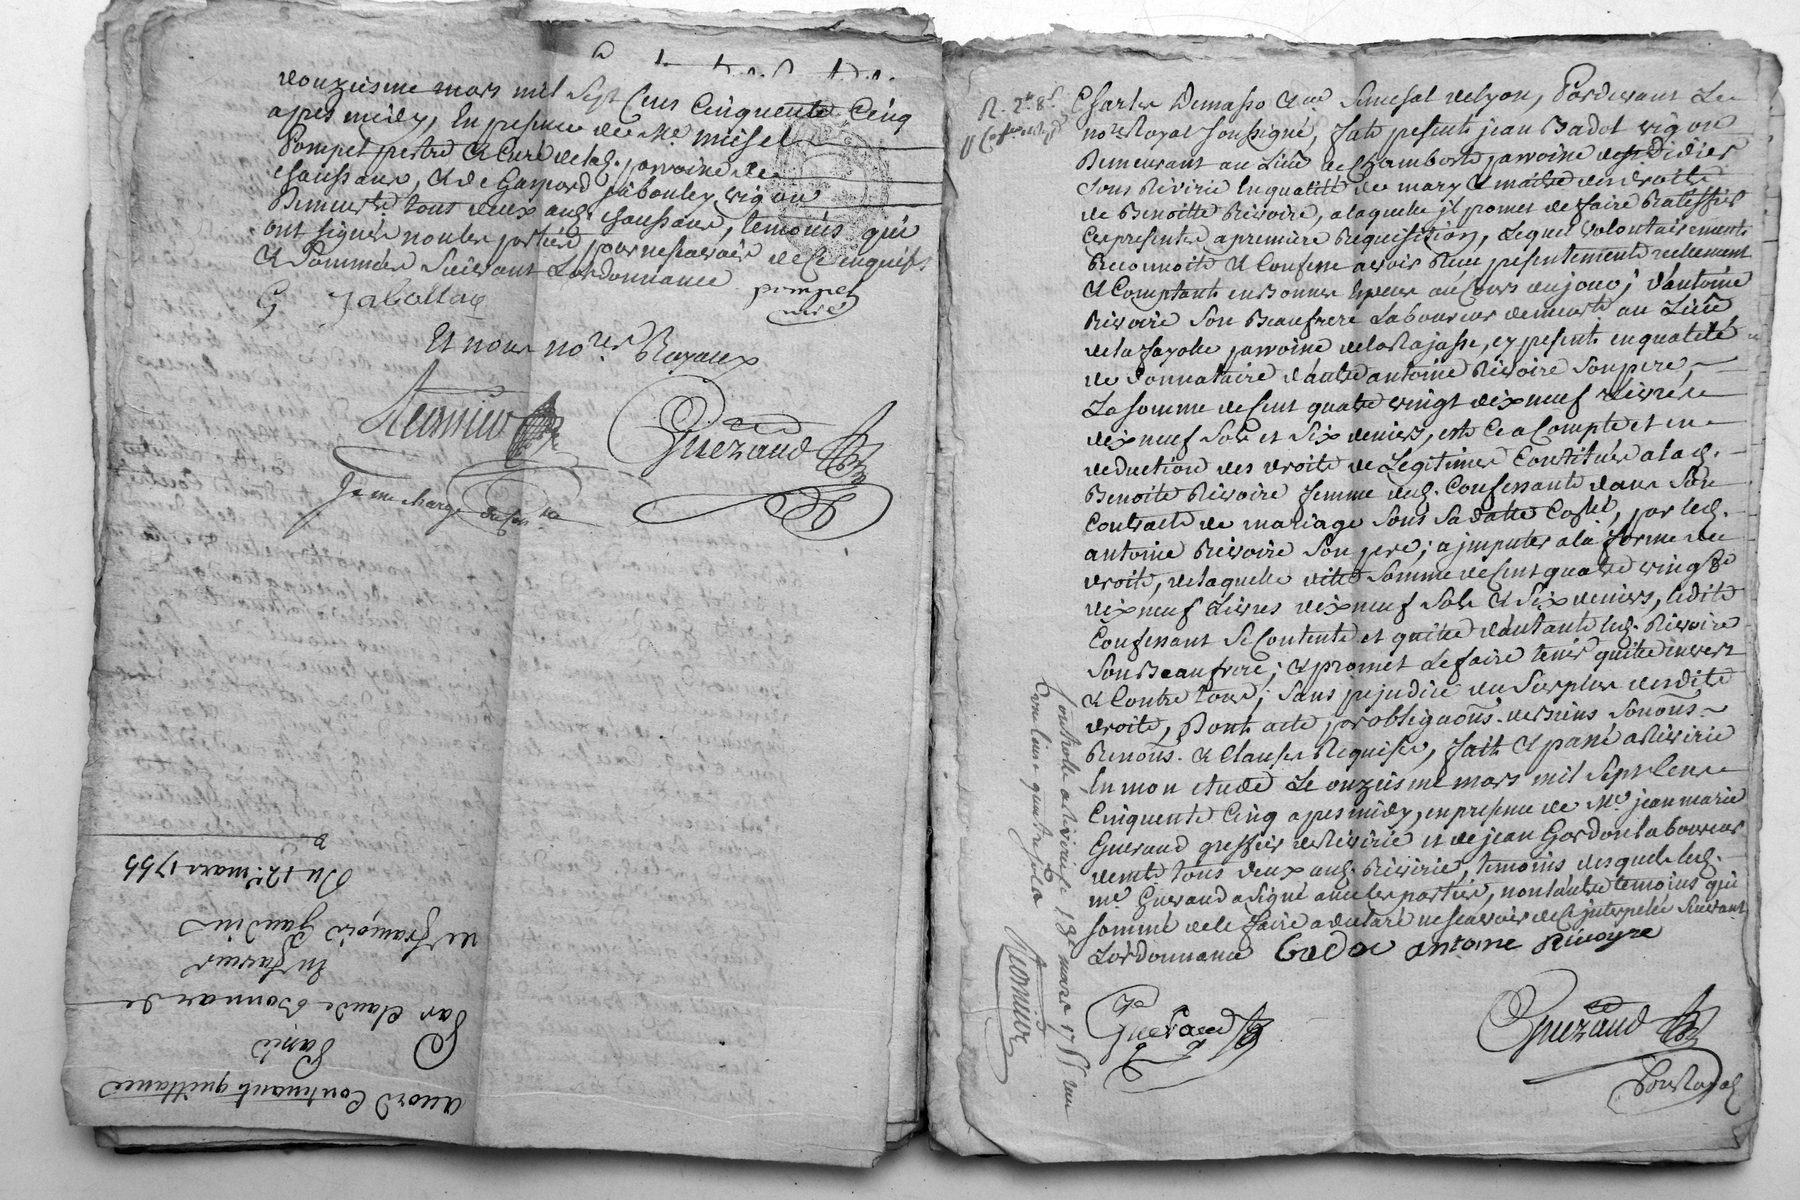 douzieme mars mil sept cens cinquente cinq
apres midy, en presence de Me. michel
Pompet pretre & curé de lad. parroine de
chaussant, & de Gaspard jaboulay vigon
Demeurts. tous deux aud. chaussant, temoins qui
ont signés non les parties pour ne scavoir de ce enquises
& sommées suivant l'ordonnance
G Jabollay
pompet
curé
Et nous nores. Royaux
Gueraud
Je me charge
Du 12e. mars 1755
de françois Gaudin
En faveur
Par Claude Bonnar de
Passé
accord Contenant quittance
R. 2d. 8s.
Charles Demasso Cer. Senechal de Lyon, Pardevant Le
nore. Royal soussigné, fut present jean Badol vigon
Demeurant au Lieu de Chamborte parroine de st Didier
sous Riverie en qualité de mary & maitre des droits
de Benoitte Rivoire, a laquelle il promet de faire Ratiffier
ces presentes a premiere Requisition, Lequel volontairement
Reconnoit & confesse avoir Reçu presentement reellement
& comptant en Bonnes Especes au cours du jour; d'antoine
Rivoire son Beaufrere Laboureur demeurt. au Lieu
de la fayolle parroine de la Rajasse, cy present en qualité
de donnataire d'autre antoine Rivoire son pere,
La somme de cent quatre vingt dix neuf Livres
dix neuf sols et six deniers, et ce a compte et en
deduction des droits de Legitimes constitués a lad.
Benoite Rivoire femme dud. confessant dans son
contract de mariage sous sa datte coste, par led.
antoine Rivoire son pere; a jmputer a la forme du
droit, de laquelle dite somme de cent quatre vingt
dix neuf Livres dix neuf sols & six deniers, ledit
confessant se contente et quitte d'autant led. Rivoire
son Beaufrere; & promet Le faire tenir quitte envers
& contre tous; sans prejudice du surplus desdits
droits, Dont acte par obligaons. de Biens soumons.
Renons. & clauses Requises, fait & passé a Riverie
En mon etude Le onzieme mars mil sept cens
cinquente cinq apres midy, en presence de Me. jean marie
Gueraud greffier de Riverie et de jean Gordon laboureur
demts. tous deux aud. Riverie, temoins desquels led.
me. Gueraud a signé avec les parties, non l'autre temoins qui
sommé de le faire a declaré ne scavoir de ce jnterpelé suivant
L'ordonnance badol antoine Rivoyre
Gueraud
Gueraud
Nore Royal
controllé a Riverie le 13e mars 1755 reçu